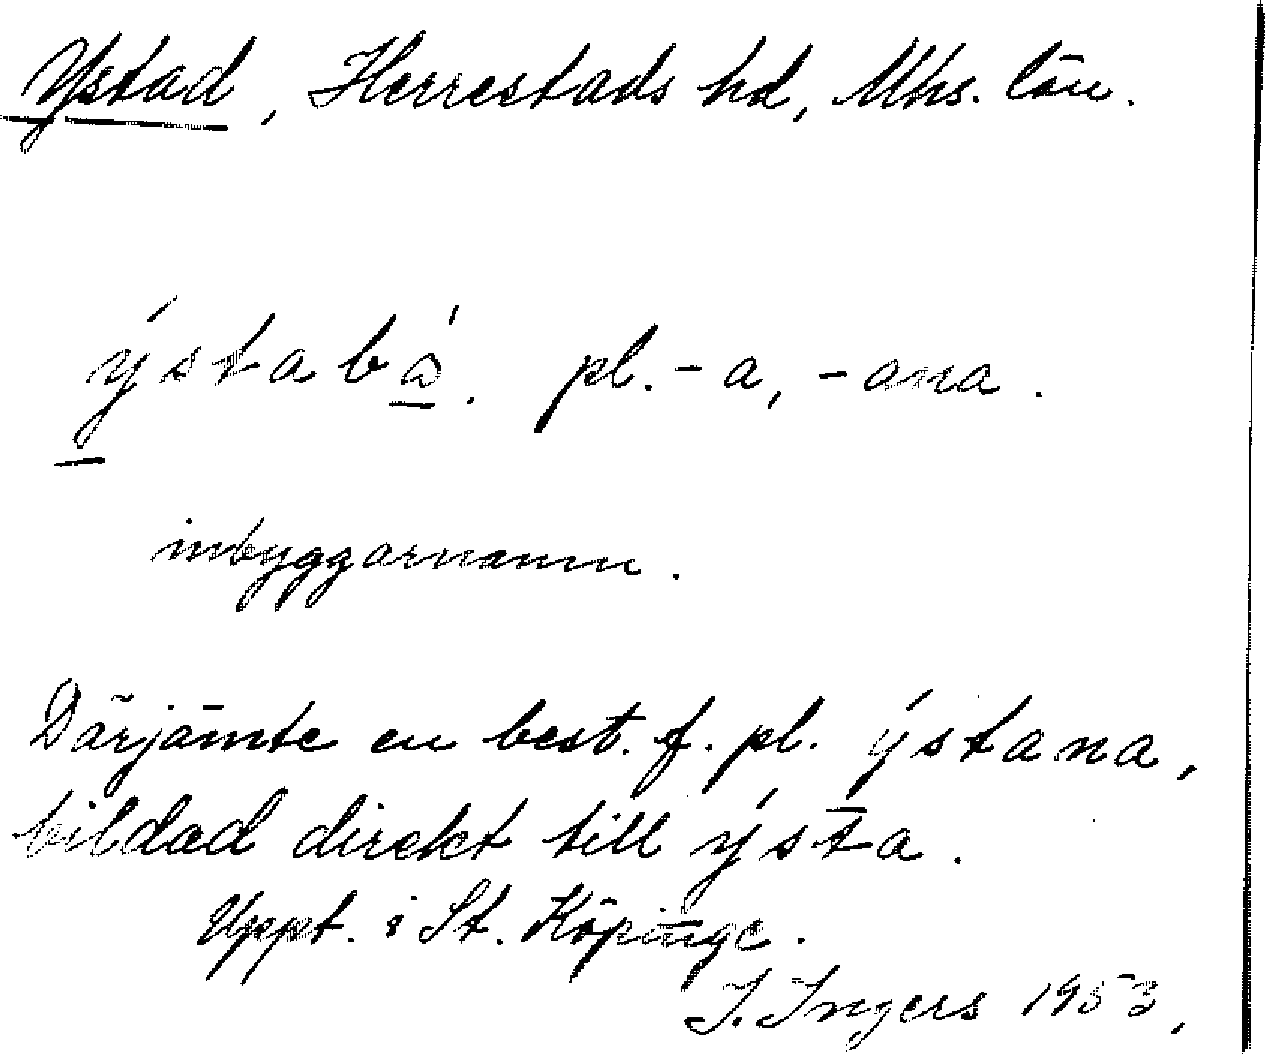 Ystad, Herrestads hd, Mhs. län.
ýstabó. pl. -a, -ana.
inbyggarnamn.
Därjämte en best. f. pl. ýstana,
bildad direkt till ýsta.
Uppt. i St. Köpinge.
I. Ingers 1953.